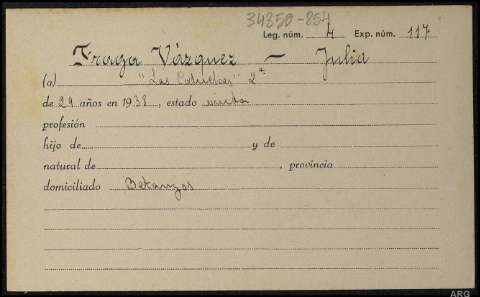 34350-854
Leg. núm. 4 Exp. núm. 117
Fraga Vázquez — Julia
(a) "Las" 2ª
de 29 años en 1938, estado
profesión
hijo de y de
natural de , provincia
domiciliado Betanzos
ARG